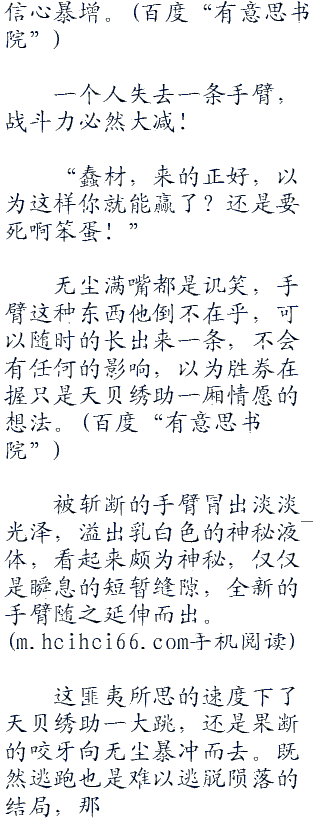 信心暴增。(百度“有意思书
院”)
一个人失去一条手臂，
战斗力必然大减！
“蠢材，来的正好，以
为这样你就能赢了？还是要
死啊笨蛋！”
无尘满嘴都是讥笑，手
臂这种东西他倒不在乎，可
以随时的长出来一条，不会
有任何的影响，以为胜券在
握只是天贝绣助一厢情愿的
想法。(百度“有意思书
院”)
被斩断的手臂冒出淡淡
光泽，溢出乳白色的神秘液
体，看起来颇为神秘，仅仅
是瞬息的短暂缝隙，全新的
手臂随之延伸而出。
(m.hcihci66.com手机阅读)
这匪夷所思的速度下了
天贝绣助一大跳，还是果断
的咬牙向无尘暴冲而去。既
然逃跑也是难以逃脱陨落的
结局，那